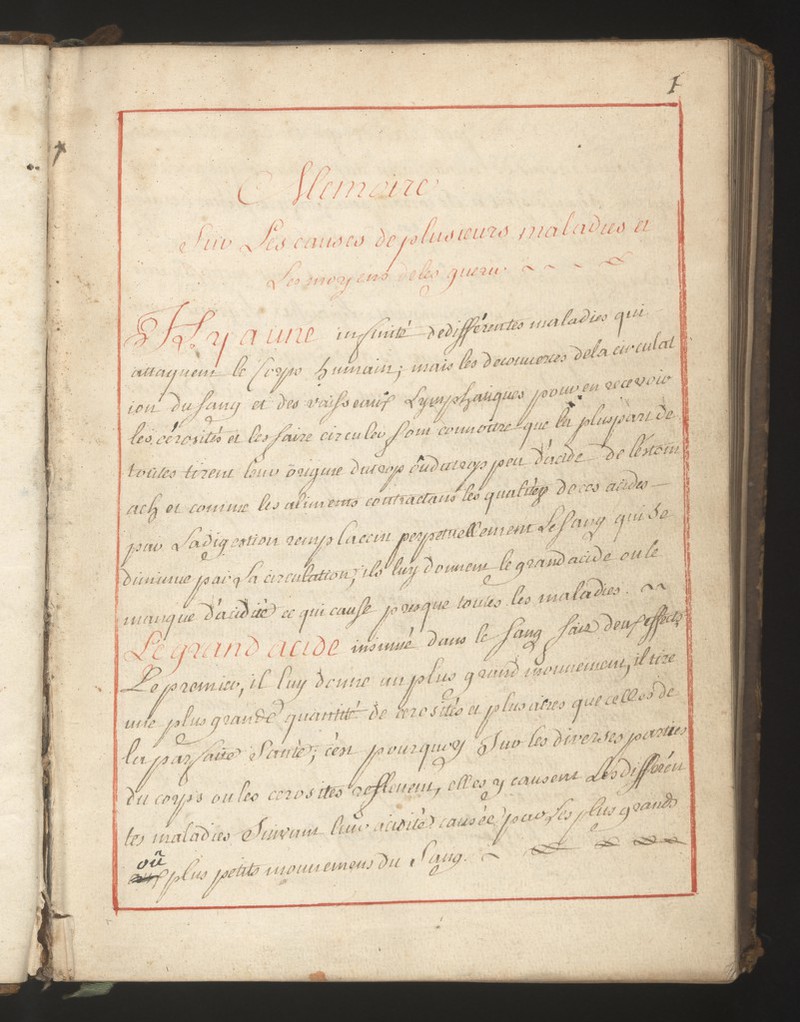 1
Memoire
Sur Les causes de plusieurs maladies et
Les moyens de les guerir
Il y a une infinité de différentes maladies qui
attaquent le Corps humain; mais les decouvertes de la circulat
ion du sang et des vaisseaux Lymphatiques pour en recevoir
les cérosités et les faire circuler font connoitre que la plus part de
toutes tirent leur origine du trop oû du trop peu d'acide De léstom
ach et comme les aliments contractans les qualités de ces acides
par La digestion remplacent perpetuellement Le sang qui se
diminue par La circulation, ils luy donnent le grand acide ou le
manque d'acidité ce qui cause presque toutes les maladies.
Le grand acide insinué dans le sang fait deux effects
Le premier, il luy donne un plus grand mouuement, il tire
une plus grande quantité de cerosités et plus acres que celles de
la parfaite Santé; c'ést pourquoy Sur les diverses parties
du corps ou les cerosites refluent, elles y causent Les differén
tes maladies Suivant leur acidité causée par Les plus grands
oû plus petits mouuemens du Sang.